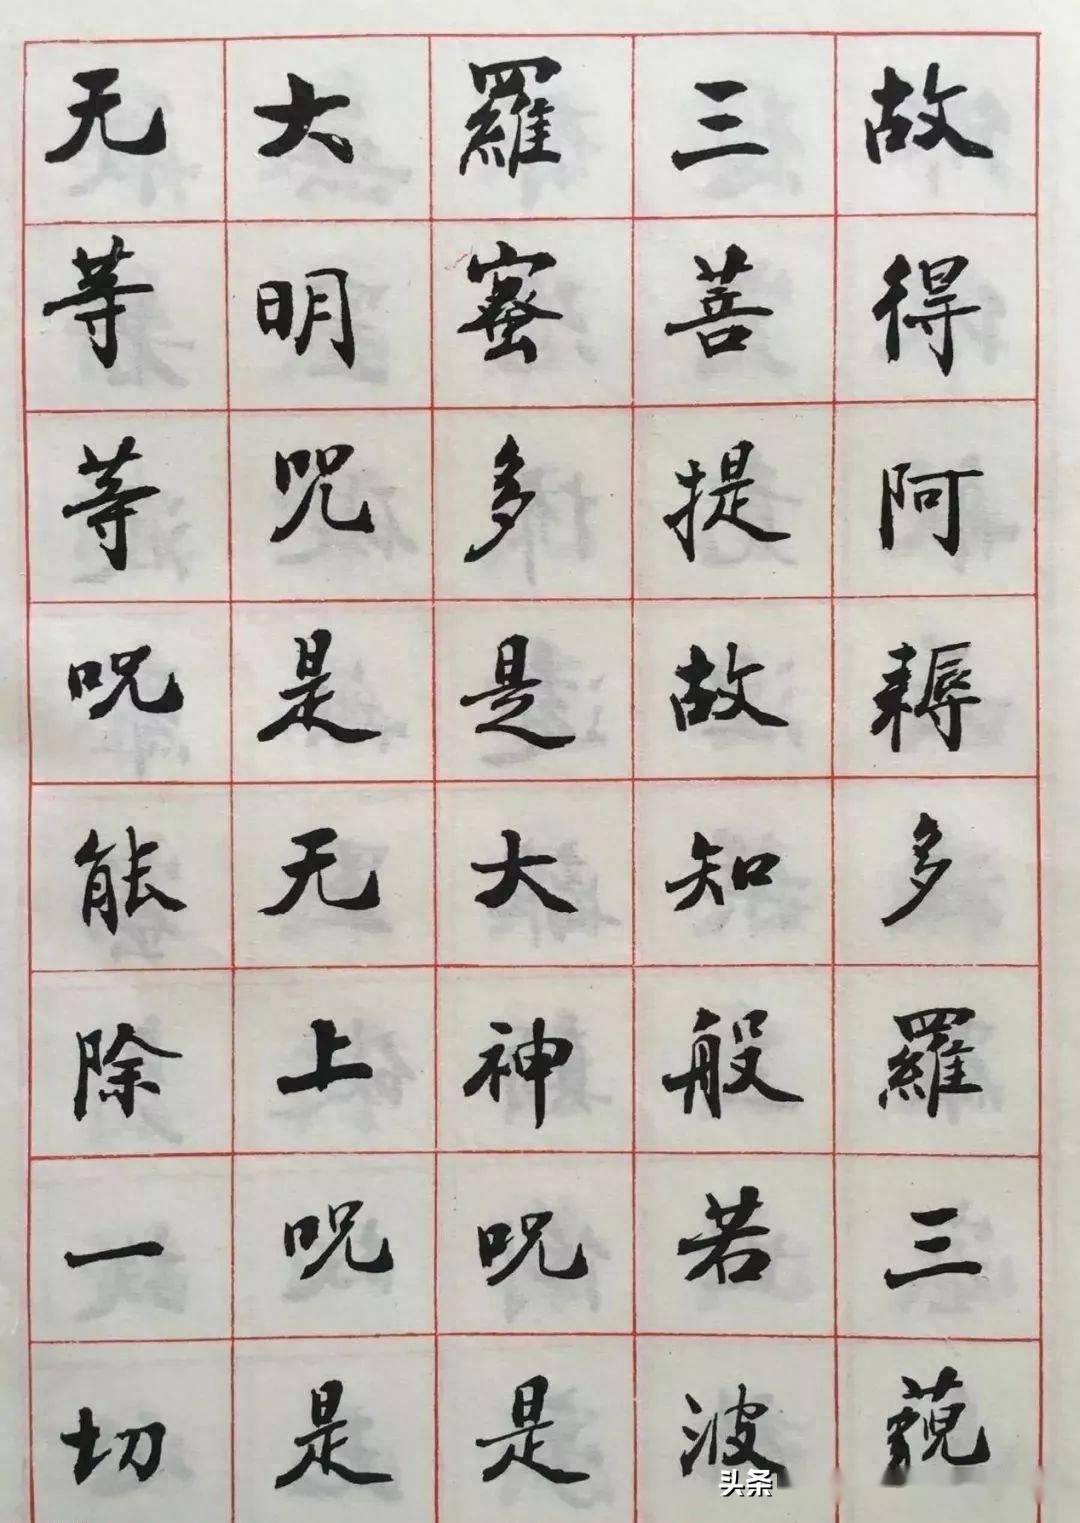 故得阿耨多羅三藐
三菩提故知般若波
羅蜜多是大神咒是
大明咒是无上咒是
无等等咒能除一切
头条